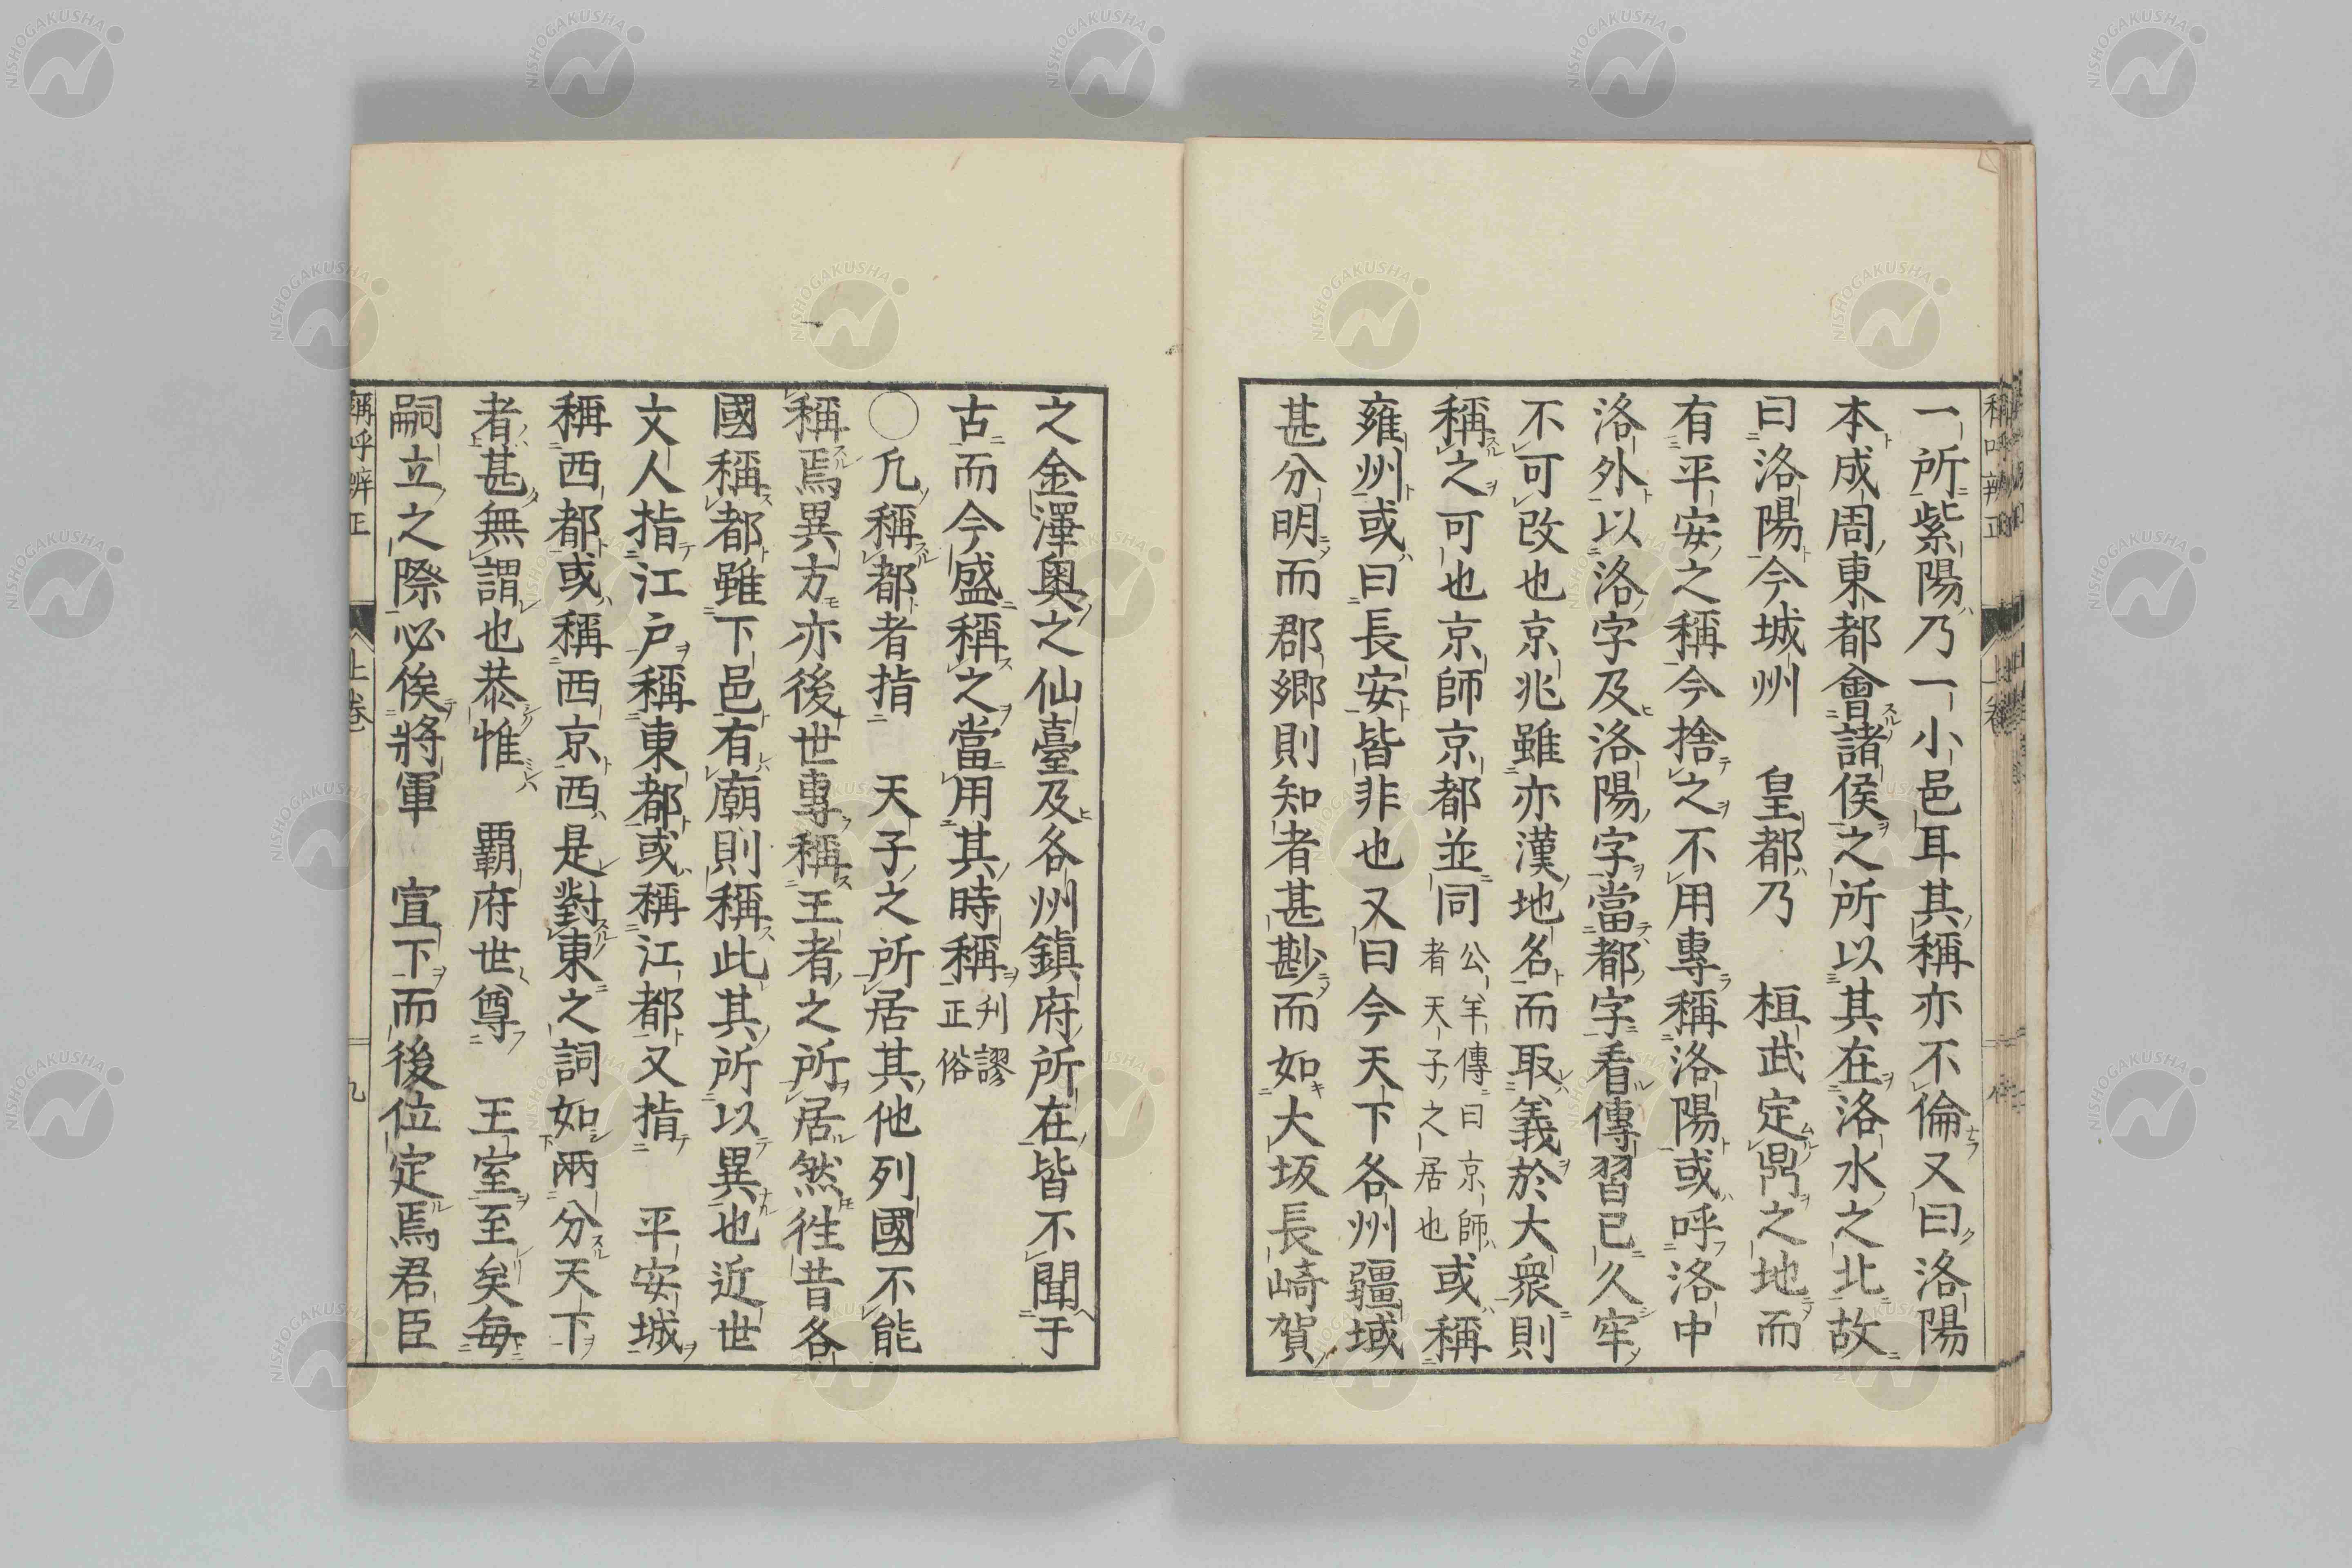 一所紫陽乃一小邑耳其稱亦不倫又曰洛陽
本成周東都會諸侯之所以其在洛水之北故
曰洛陽今城州　皇都乃　桓武定鼎之地而
有平安之稱今捨之不用專稱洛陽或呼洛中
洛外以洛字及洛陽字當都字看傳習已久牢
不可改也京兆雖亦漢地名而取義於大衆則
稱之可也京師京都並同公羊傳曰京師者天子之居也或稱
雍州或曰長安皆非也又曰今天下各州疆域
甚分明而郡郷則知者甚尠而如大坂長崎賀
之金澤奥之仙臺及各州鎮府所在皆不聞于
古而今盛稱之當用其時稱刋謬正俗
○凢稱都者指　天子之所居其他列國不能
稱焉異方亦後世專稱王者之所居然徃昔各
國稱都雖下邑有廟則稱此其所以異也近世
文人指江户稱東都或稱江都又指　平安城
稱西都或稱西京西是對東之詞如兩分天下
者甚無謂也恭惟　覇府世尊　王室至矣每
嗣立之際必俟將軍　宣下而後位定焉君臣
稱呼辨正　上卷　九
NISHOGAKUSHA